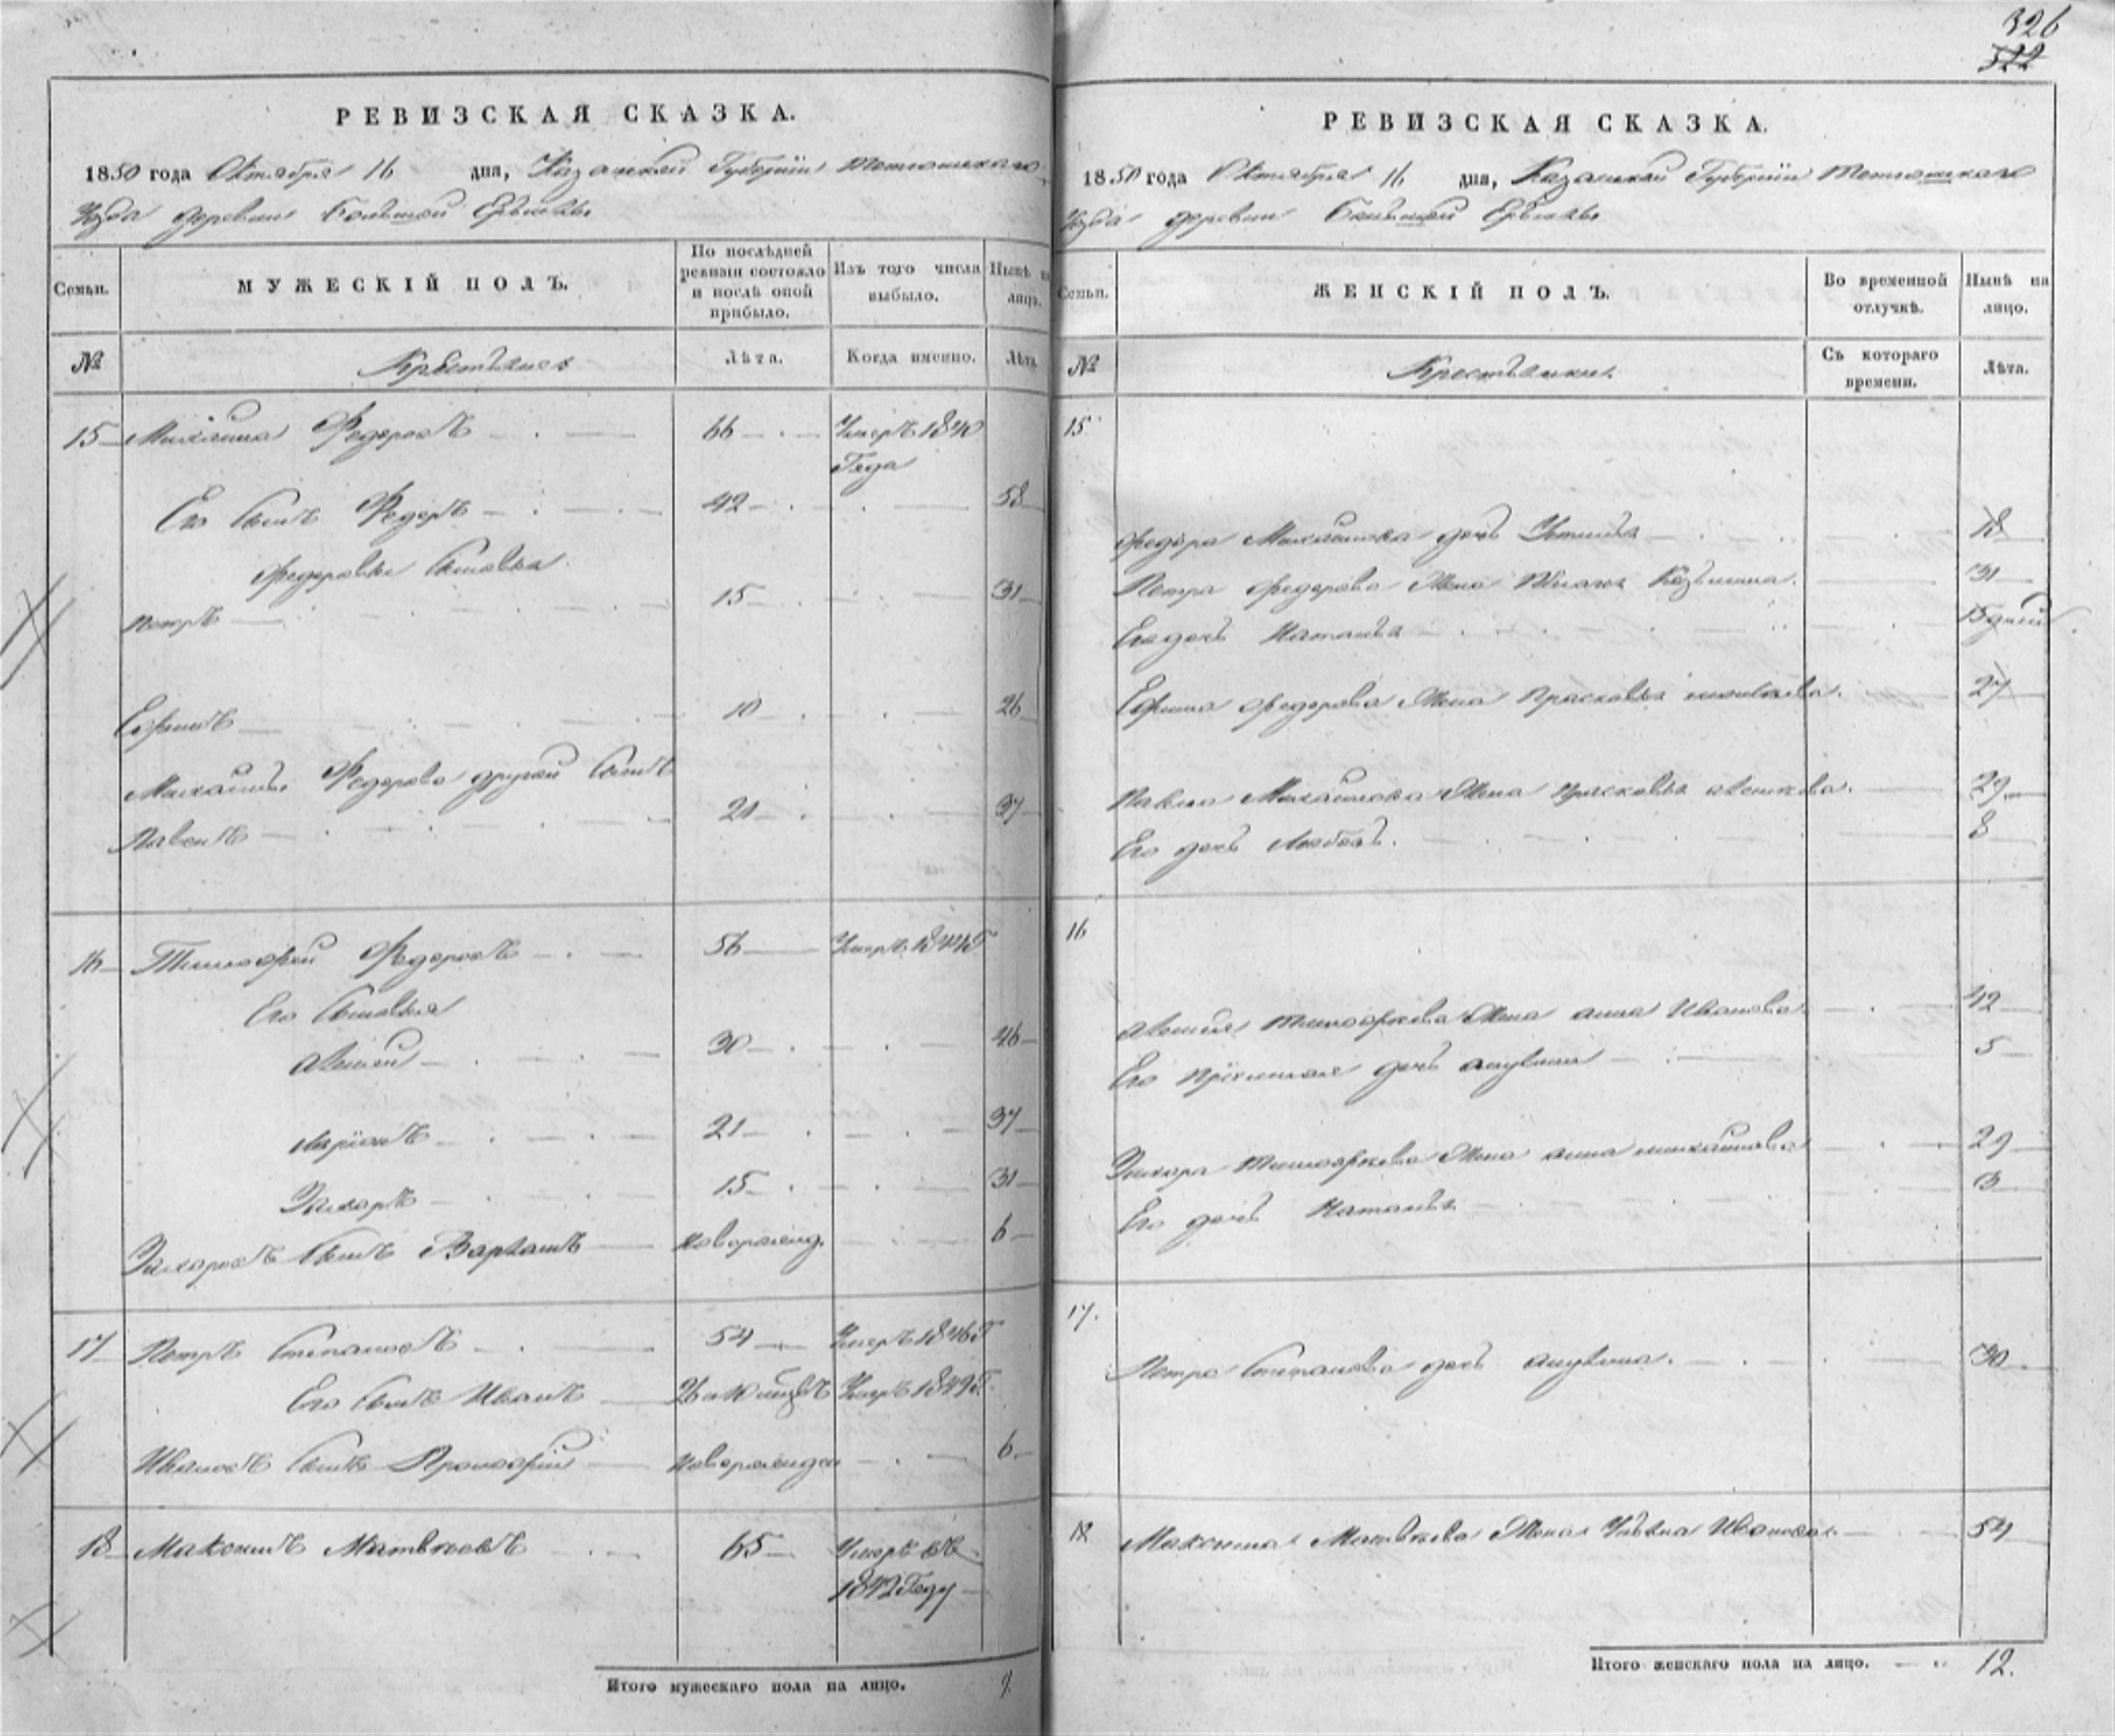 326
322
РЕВИЗСКАЯ СКАЗКА.
1850 года Октября 16 дня, Казанской Губернии Тетюшскаго
Уезда деревни Большой
Семьи.
МУЖЕСКІЙ ПОЛЪ.
По послѣдней ревизіи состояло и послѣ оной прибыло.
Изъ того числа выбыло.
Нынѣ на лицо.
№
Крестьяне
Лѣта.
Когда именно.
Лѣта
15 Михайла Федоровъ 66 Умеръ 1840
Года
Его Сынъ Федоръ 42 58
Федоровы Сыновья
Петръ 15 31
Ефимъ 10 26
Михайлы Федорова другой Сынъ
Павелъ 21 37
16 Тимофей Федоровъ 56 Умеръ 1844 Г
Его Сыновья
Алексей 30 46
Ларіонъ 21 37
Захаръ 15 31
Захаровъ Сынъ новорожд. 6
17 Петръ Степановъ 54 Умеръ 1846 Г
Его Сынъ Иванъ Умеръ 1849 Г.
Ивановъ Сынъ Прокофій новорожден 6
18 Максимъ Матвѣевъ 65 Умеръ въ
1842 Году
Итого мужескаго пола на лицо. 9.
РЕВИЗСКАЯ СКАЗКА.
1850 года Октября 16 дня, Казанской Губерніи Тетюшскаго
Уезда деревни Большой
Семьи.
ЖЕНСКІЙ ПОЛЪ.
Во временной отлучкѣ.
Нынѣ на лицо.
№
Крестьянки.
Съ котораго времени.
Лѣта.
15
Федора Михайлова дочь Устинья 18
Петра Федорова Жена Козьмина. 31
Его дочь Наталья 15 дней
Ефима Федорова Жена Прасковья 27
Павла Михайлова Жена Прасковья 29
Его дочь Любовь. 8
16
Алексея Тимофеева Жена Анна Иванова 42
Его дочь Акулина 5
Захара Тимофеева Жена Анна Михайлова 29
Его дочь Наталья 3
17.
Петра Степанова дочь Акулина. 30
18 Максима Матвѣева Жена Ульяна Иванова 54
Итого женскаго пола на лицо. 12.